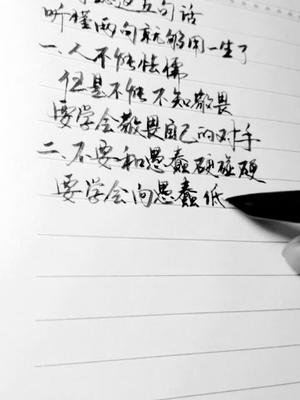 这五句话
听懂两句就够用一生了
一、人不能怯懦
但是不能不知敬畏
要学会敬畏自己的对手
二、不要和愚蠢硬碰硬
要学会向愚蠢低